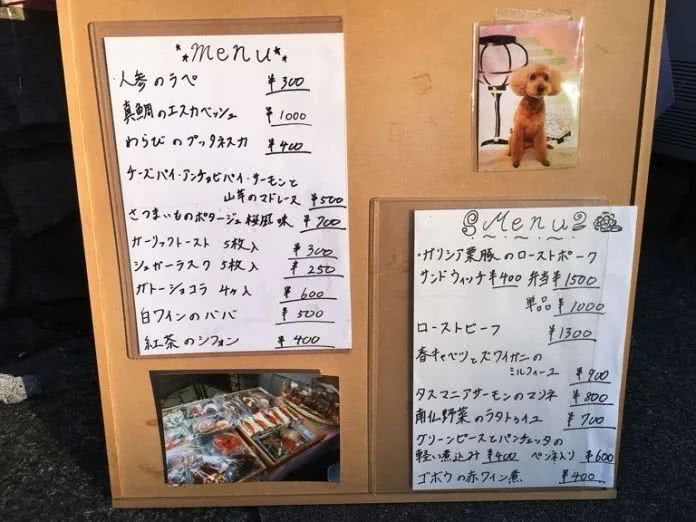 menu
・人参のラペ ¥300
真鯛のエスカベッシュ ¥1000
わらびのプッタネスカ ¥400
チーズパイ・アンチョビパイ・サーモンと
山芋のマドレーヌ ¥500
さつまいものポタージュ桜風味 ¥700
ガーリックトースト 5枚入 ¥300
シュガーラスク 5枚入 ¥250
ガトーショコラ 4ヶ入 ¥600
白ワインのババ ¥500
紅茶のシフォン ¥400
Menu2
・ガリシア栗豚のローストポーク
サンドウィッチ ¥400 弁当 ¥1500
単品 ¥1000
ローストビーフ ¥1300
春キャベツとズワイガニの
ミルフィーユ ¥900
タスマニアサーモンのマリネ ¥800
南仏野菜のラタトゥイユ ¥700
グリーンピースとパンチェッタの
軽い煮込み ¥400 ペンネ入り ¥600
ゴボウの赤ワイン煮 ¥400